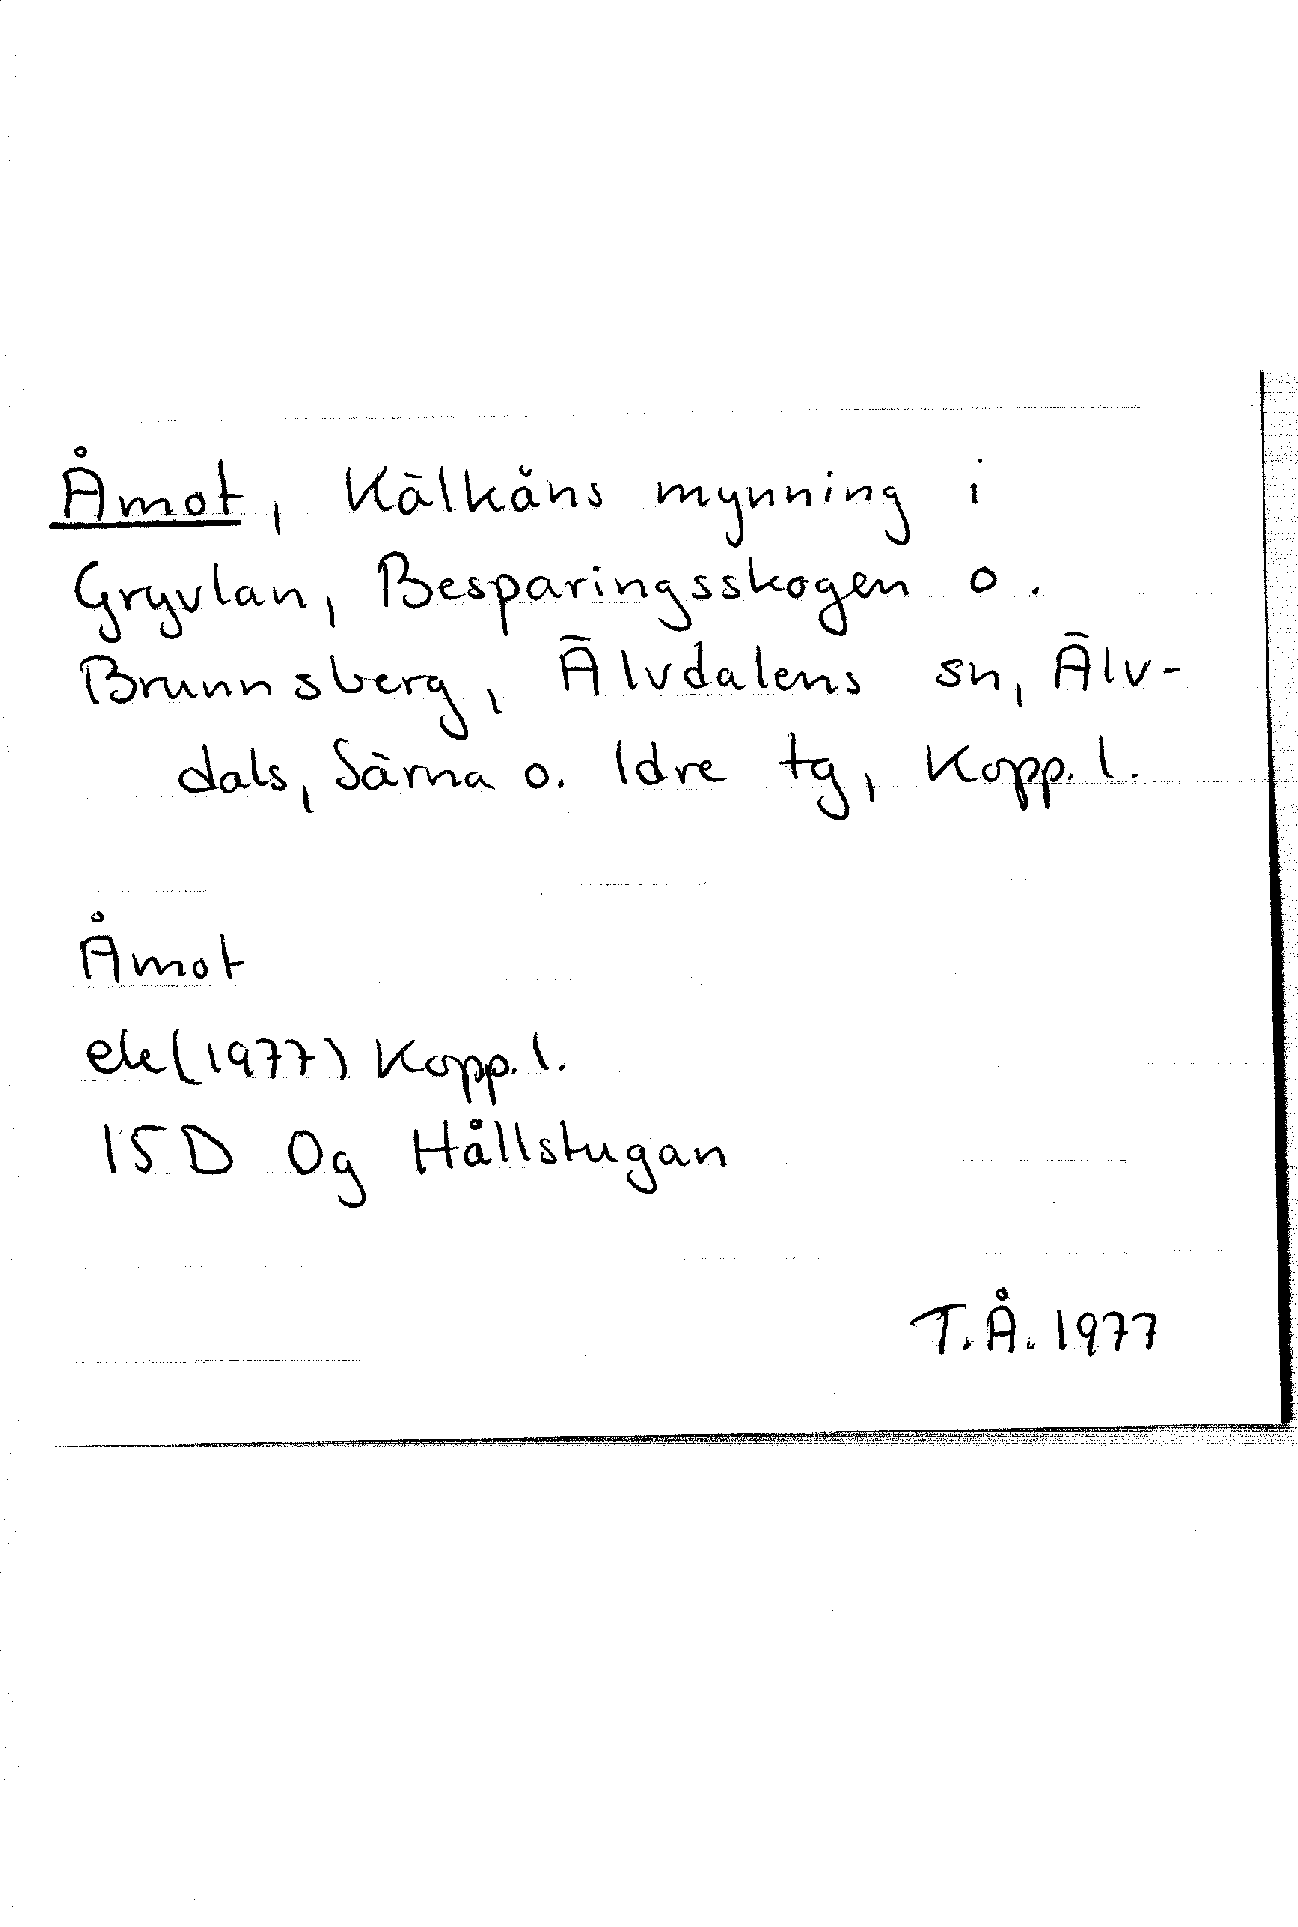 Åmot, Kälkåns mynning i
Gryvlan, Besparingsskogen o.
Brunnsberg, Älvdalens sn, Älv-
dals, Särna o. Idre tg, Kopp. l.
Åmot
ek (1977) Kopp. l.
15D 0g Hållstugan
T.Å. 1977